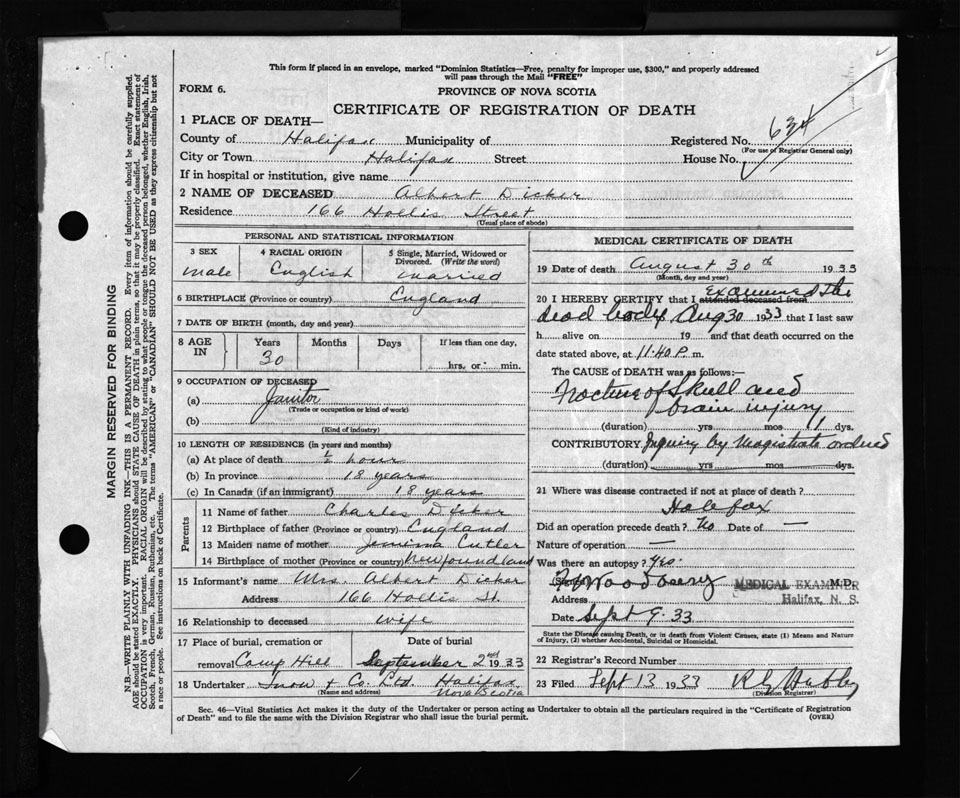 This form if placed in an envelope, marked "Dominion Statistics—Free, penalty for improper use, $300," and properly addressed
will pass through the Mail "FREE"
FORM 6.
PROVINCE OF NOVA SCOTIA
CERTIFICATE OF REGISTRATION OF DEATH
1 PLACE OF DEATH—
County of Halifax Municipality of Registered No. 634
(For use of Registrar General only)
City or Town Halifax Street House No.
If in hospital or institution, give name
2 NAME OF DECEASED Albert Dicker
Residence 166 Hollis Street
(Usual place of abode)
MARGIN RESERVED FOR BINDING
N.B.—WRITE PLAINLY WITH UNFADING INK—THIS IS A PERMANENT RECORD. Every item of information should be carefully supplied.
AGE should be stated EXACTLY. PHYSICIANS should STATE CAUSE OF DEATH in plain terms, so that it may be properly classified. Exact statement of
OCCUPATION is very important. RACIAL ORIGIN will be described by stating to what people or tongue the deceased person belonged, whether English, Irish,
Scotch, French, German, Russian, Ruthenian, etc. The terms "AMERICAN" or "CANADIAN" SHOULD NOT BE USED as they express citizenship but not
a race or people. See instructions on back of Certificate.
PERSONAL AND STATISTICAL INFORMATION
3 SEX
male
4 RACIAL ORIGIN
English
5 Single, Married, Widowed or
Divorced. (Write the word)
married
6 BIRTHPLACE (Province or country) England
7 DATE OF BIRTH (month, day and year)
8 AGE
IN
Years Months Days If less than one day,
30
hrs. or min.
9 OCCUPATION OF DECEASED
(a) Janitor
(Trade or occupation or kind of work)
(b)
(Kind of industry)
10 LENGTH OF RESIDENCE (in years and months)
(a) At place of death ½ hour
(b) In province 18 years
(c) In Canada (if an immigrant) 18 years
Parents
11 Name of father Charles Dicker
12 Birthplace of father (Province or country) England
13 Maiden name of mother Jemima Cutler
14 Birthplace of mother (Province or country) Newfoundland
15 Informant's name Mrs. Albert Dicker
Address 166 Hollis St.
16 Relationship to deceased wife
17 Place of burial, cremation or Date of burial
removal Camp Hill September 2nd 1933
18 Undertaker Snow & Co. Ltd. Halifax
(Name and address) Nova Scotia
MEDICAL CERTIFICATE OF DEATH
19 Date of death August 30th 1933
(Month, day and year)
20 I HEREBY CERTIFY that I attended deceased from examined the
dead body Aug 30 1933 that I last saw
h alive on 19 and that death occurred on the
date stated above, at 11.40 P. m.
The CAUSE of DEATH was as follows:—
Fracture of Skull and
brain injury
(duration) yrs mos dys.
CONTRIBUTORY Inquiry by Magistrate ordered
(duration) yrs mos dys.
21 Where was disease contracted if not at place of death?
Halifax
Did an operation precede death? No Date of —
Nature of operation —
Was there an autopsy? Yes.
Woodbury MEDICAL EXAMINER M.D.
Address Halifax, N. S.
Date Sept 9. 33
State the Disease causing Death, or in death from Violent Causes, state (1) Means and Nature
of Injury, (2) whether Accidental, Suicidal or Homicidal.
22 Registrar's Record Number
23 Filed Sept 13 1933
(Division Registrar)
Sec. 46—Vital Statistics Act makes it the duty of the Undertaker or person acting as Undertaker to obtain all the particulars required in the "Certificate of Registration
of Death" and to file the same with the Division Registrar who shall issue the burial permit.
(OVER)